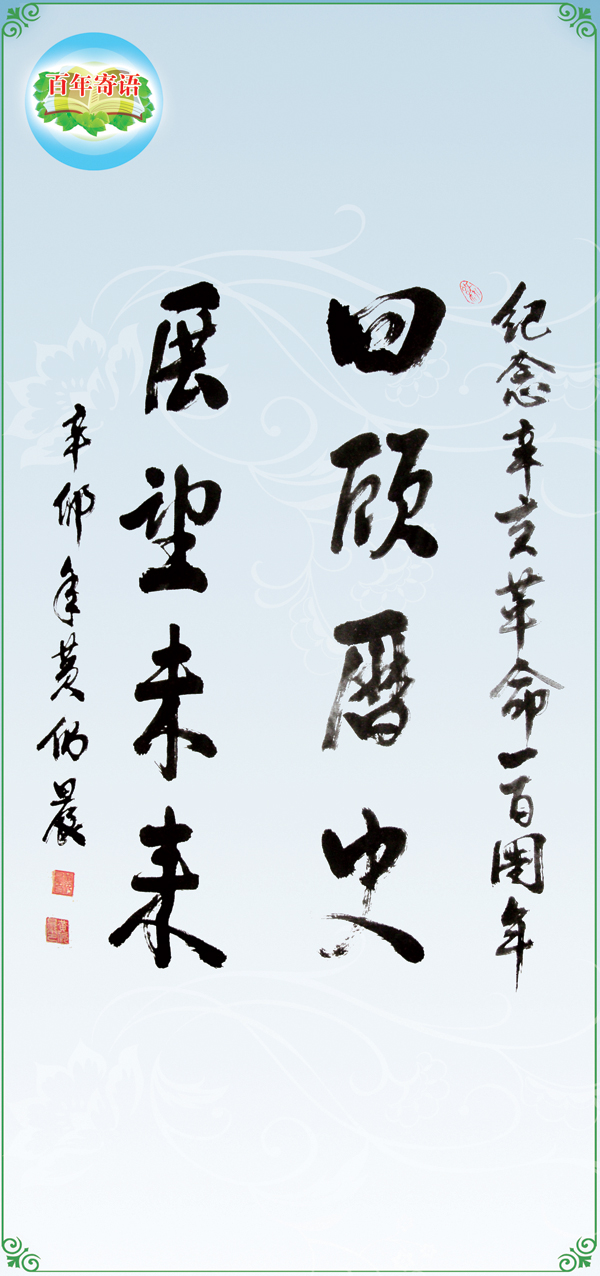 百年寄语
纪念辛亥革命一百周年
回顾历史
展望未来
辛卯年黄伟晨